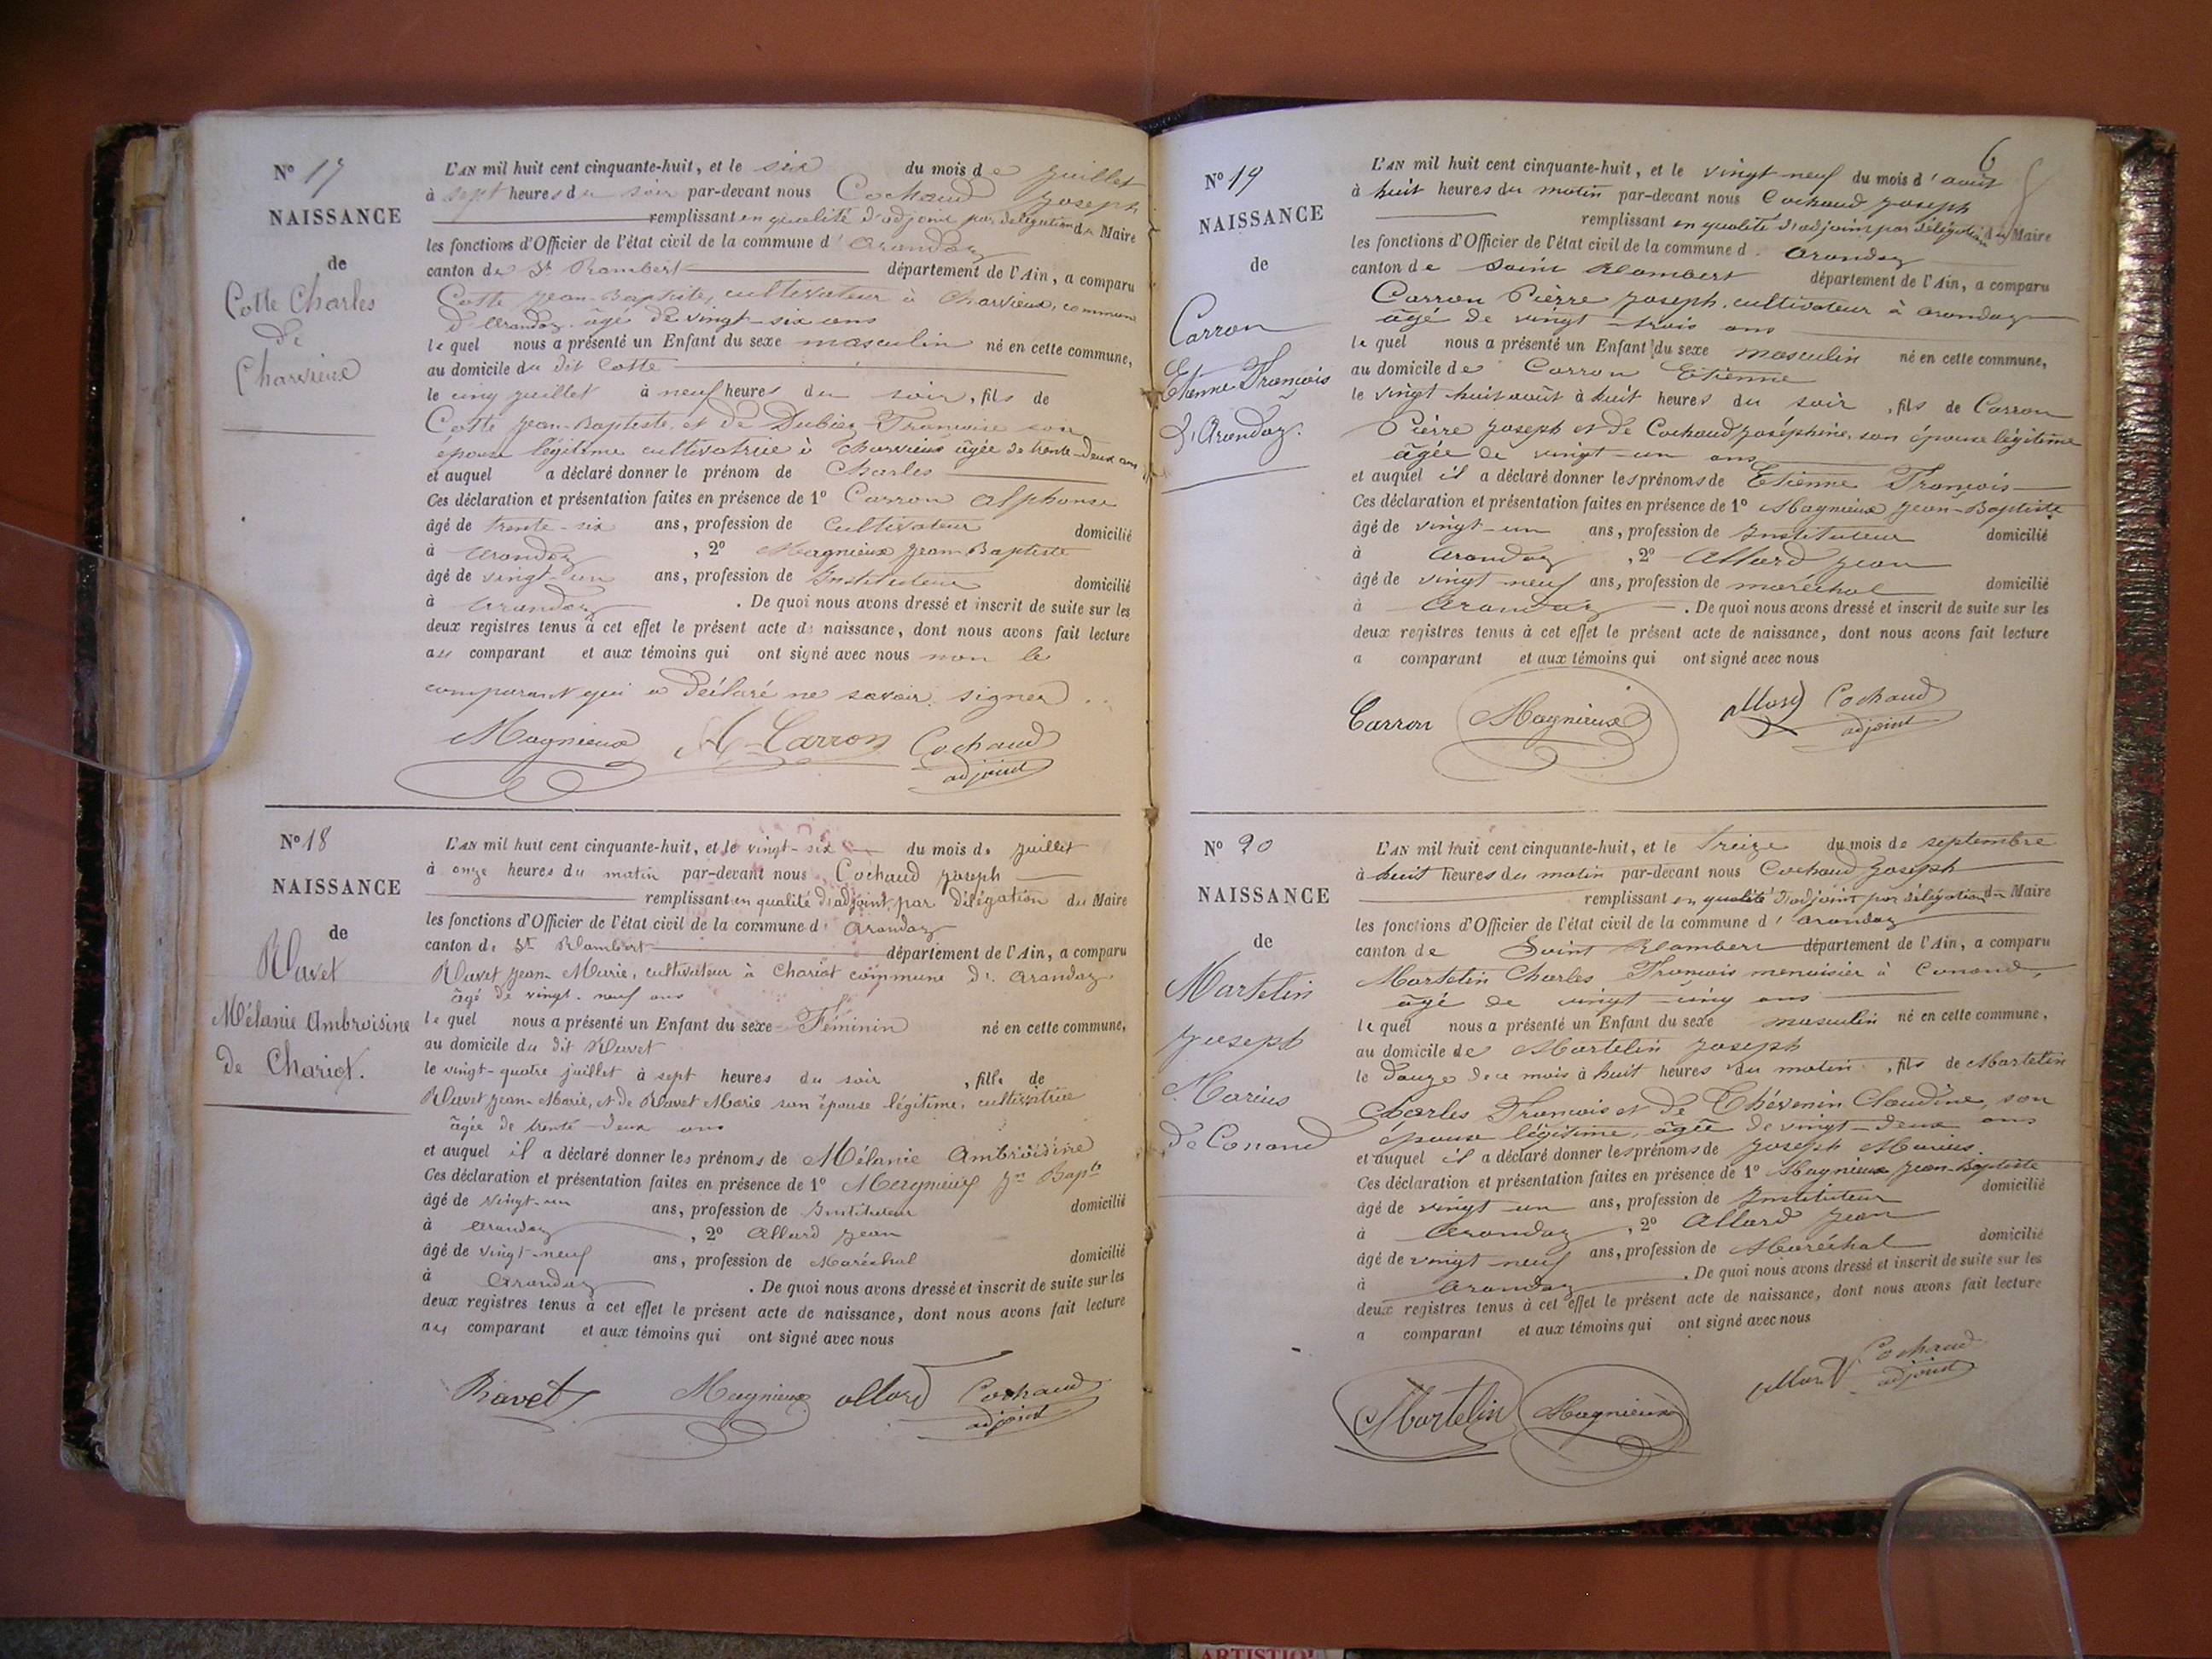 N° 17
NAISSANCE
de
Cotte Charles
de
Charvieux
L'AN mil huit cent cinquante-huit, et le six du mois de juillet
à sept heures du soir par-devant nous Cochaud Joseph
remplissant en qualité d'adjoint par délégation du Maire
les fonctions d'Officier de l'état civil de la commune d' Arandaz
canton de St Rambert département de l'Ain, a comparu
Cotte Jean-Baptiste, cultivateur à Charvieux, commune
d'Arandaz âgé de vingt-six ans
lequel nous a présenté un Enfant du sexe masculin né en cette commune,
au domicile du dit Cotte
le cinq juillet à neuf heures du soir, fils de
Cotte Jean-Baptiste, et de Dubiez Françoise son
épouse légitime cultivatrice à Charvieux âgée de trente-deux ans
et auquel a déclaré donner le prénom de Charles
Ces déclaration et présentation faites en présence de 1° Carron Alphonse
âgé de trente-six ans, profession de Cultivateur domicilié
à Arandaz, 2° Magnieux Jean-Baptiste
âgé de vingt-un ans, profession de Instituteur domicilié
à Arandaz. De quoi nous avons dressé et inscrit de suite sur les
deux registres tenus à cet effet le présent acte de naissance, dont nous avons fait lecture
au comparant et aux témoins qui ont signé avec nous non le
comparant qui a déclaré ne savoir signer
Magnieux A. Carron Cochaud
adjoint
N° 18
NAISSANCE
de
Ravet
Mélanie Ambroisine
de Chariot.
L'AN mil huit cent cinquante-huit, et le vingt-six du mois de juillet
à onze heures du matin par-devant nous Cochaud Joseph
remplissant en qualité d'adjoint par délégation du Maire
les fonctions d'Officier de l'état civil de la commune d' Arandaz
canton de St Rambert département de l'Ain, a comparu
Ravet Jean-Marie, cultivateur à Chariot commune d' Arandaz
âgé de vingt-neuf ans
lequel nous a présenté un Enfant du sexe Féminin né en cette commune,
au domicile du dit Ravet
le vingt-quatre juillet à sept heures du soir, fille de
Ravet Jean-Marie, et de Ravet Marie son épouse légitime, cultivatrice
âgée de trente-deux ans
et auquel il a déclaré donner les prénoms de Mélanie Ambroisine
Ces déclaration et présentation faites en présence de 1° Magnieux Jn Bapte
âgé de vingt-un ans, profession de Instituteur domicilié
à Arandaz, 2° Allard Jean
âgé de vingt-neuf ans, profession de Maréchal domicilié
à Arandaz. De quoi nous avons dressé et inscrit de suite sur les
deux registres tenus à cet effet le présent acte de naissance, dont nous avons fait lecture
au comparant et aux témoins qui ont signé avec nous
Ravet Magnieux Allard Cochaud
adjoint
6
N° 19
NAISSANCE
de
Carron
Etienne François
d'Arandaz.
L'AN mil huit cent cinquante-huit, et le vingt neuf du mois d'août
à huit heures du matin par-devant nous Cochaud Joseph
remplissant en qualité d'adjoint par délégation du Maire
les fonctions d'Officier de l'état civil de la commune d Arandaz
canton de Saint Rambert département de l'Ain, a comparu
Carron Pierre Joseph, cultivateur à Arandaz
âgé de vingt-trois ans
lequel nous a présenté un Enfant du sexe masculin né en cette commune,
au domicile de Carron Etienne
le vingt huit août à huit heures du soir, fils de Carron
Pierre Joseph et de Cochaud Joséphine, son épouse légitime
âgée de vingt-un ans
et auquel il a déclaré donner les prénoms de Etienne François
Ces déclaration et présentation faites en présence de 1° Magnieux Jean-Baptiste
âgé de vingt-un ans, profession de Instituteur domicilié
à Arandaz, 2° Allard Jean
âgé de vingt neuf ans, profession de maréchal domicilié
à Arandaz. De quoi nous avons dressé et inscrit de suite sur les
deux registres tenus à cet effet le présent acte de naissance, dont nous avons fait lecture
a comparant et aux témoins qui ont signé avec nous
Carron Magnieux Allard Cochaud
adjoint
N° 20
NAISSANCE
de
Martelin
Joseph
Marius
de Conand
L'AN mil huit cent cinquante-huit, et le treize du mois de septembre
à huit heures du matin par-devant nous Cochaud Joseph
remplissant en qualité d'adjoint par délégation du Maire
les fonctions d'Officier de l'état civil de la commune d' Arandaz
canton de Saint Rambert département de l'Ain, a comparu
Martelin Charles François menuisier à Conand,
âgé de vingt-cinq ans
lequel nous a présenté un Enfant du sexe masculin né en cette commune,
au domicile de Martelin Joseph
le douze de ce mois à huit heures du matin, fils de Martelin
Charles François et de Thévenin Claudine, son
épouse légitime, âgée de vingt-deux ans
et auquel il a déclaré donner les prénoms de Joseph Marius.
Ces déclaration et présentation faites en présence de 1° Magnieux Jean-Baptiste
âgé de vingt un ans, profession de Instituteur domicilié
à Arandaz, 2° Allard Jean
âgé de vingt neuf ans, profession de Maréchal domicilié
à Arandaz. De quoi nous avons dressé et inscrit de suite sur les
deux registres tenus à cet effet le présent acte de naissance, dont nous avons fait lecture
a comparant et aux témoins qui ont signé avec nous
Martelin Magnieux Allard Cochaud
adjoint